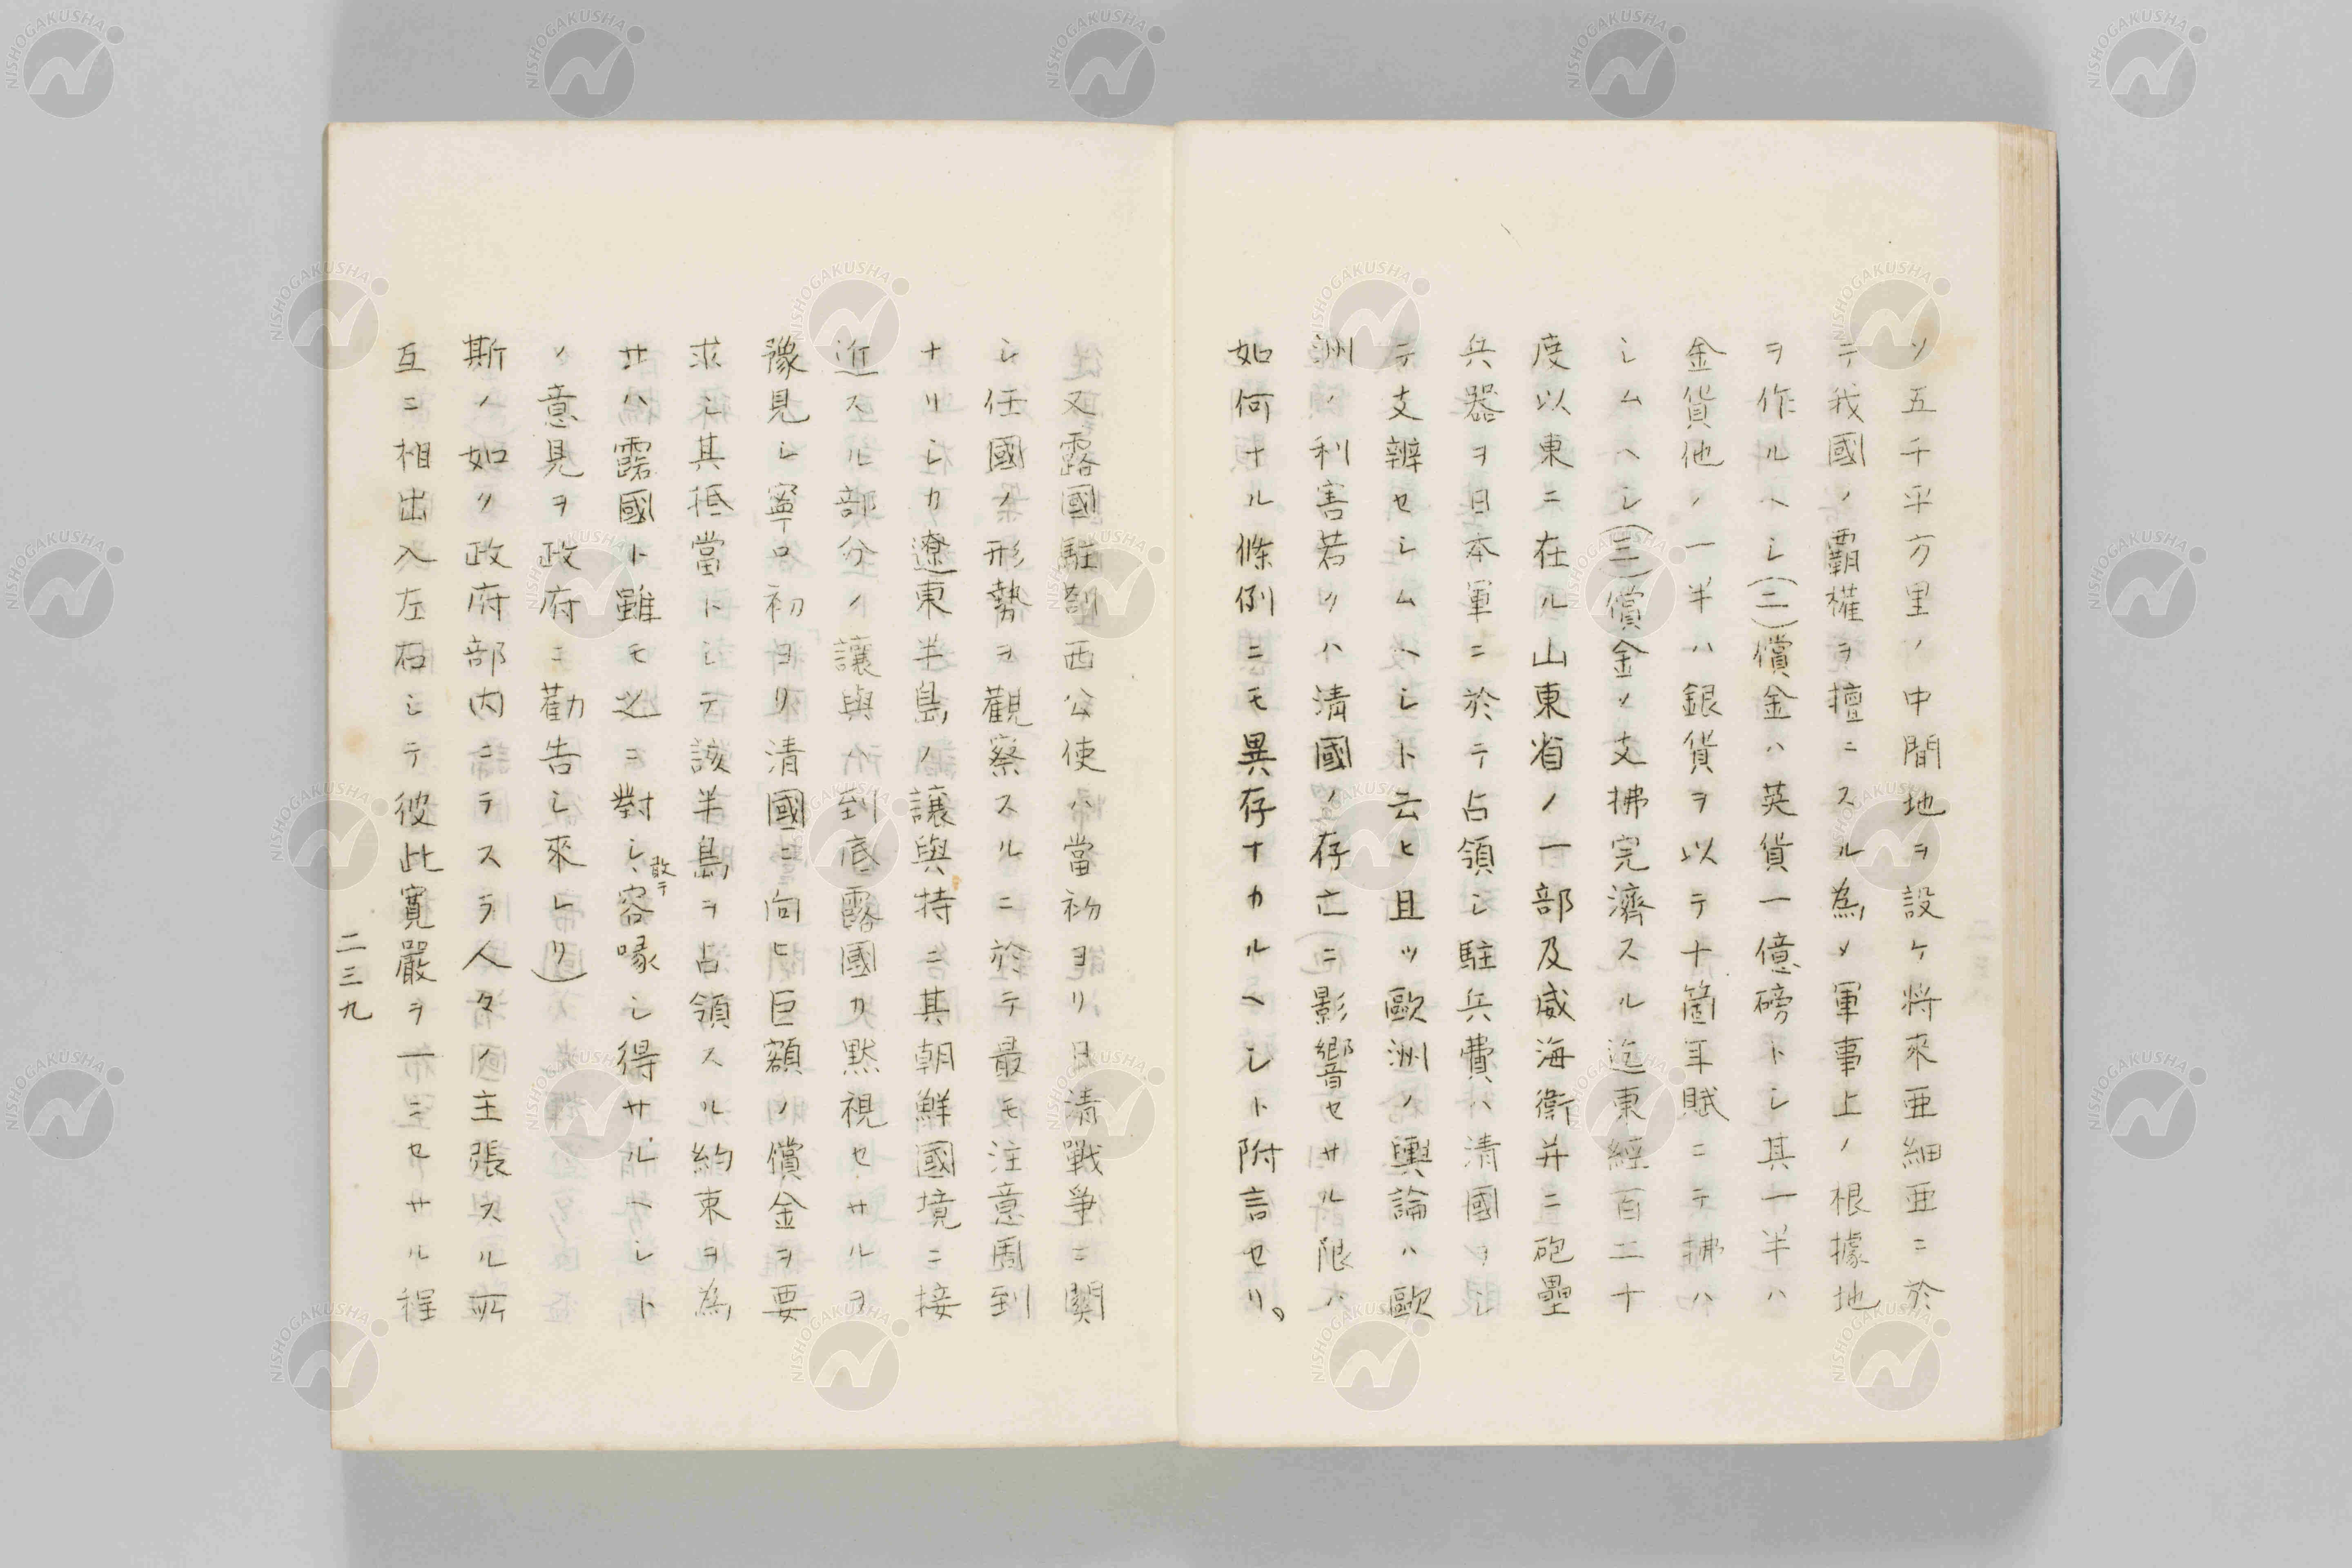 ソ五千平方里ノ中間地ヲ設ケ将來亜細亜ニ於
テ我國ノ覇権ヲ擅ニスル為メ軍事上ノ根據地
ヲ作ルヘシ(二)償金ハ英貨一億磅トシ其一半ハ
金貨他ノ一半ハ銀貨ヲ以テ十箇年賦ニテ拂ハ
シムヘシ(三)償金ノ支拂完濟スル迄東經百二十
度以東ニ在ル山東省ノ一部及威海衛并ニ砲壘
兵器ヲ日本軍ニ於テ占領シ駐兵費ハ清國ヲシ
テ支辨セシムヘシト云ヒ且ツ歐洲ノ輿論ハ歐
洲ノ利害若クハ清國ノ存亡ニ影響セサル限ハ
如何ナル條例ニモ異存ナカルヘシト附言セリ。
又露國駐劄西公使ハ當初ヨリ日清戰爭ニ關
シ任國ノ形勢ヲ觀察スルニ於テ最モ注意周到
ナリシカ遼東半島ノ讓與特ニ其朝鮮國境ニ接
近スル部分ノ讓與ハ到底露國カ黙視セサルヲ
豫見シ寧ロ初ヨリ清國ニ向ヒ巨額ノ償金ヲ要
求シ其抵當トシテ該半島ヲ占領スル約束ヲ為
サハ露國ト雖モ之ニ對シ敢テ容喙シ得サルヘシト
ノ意見ヲ政府ニ勸告シ來レリ)
斯ノ如ク政府部内ニテスラ人々ノ主張スル所
互ニ相出入左右シテ彼此寛嚴ヲ一ニセサル程
二三九
NISHOGAKUSHA